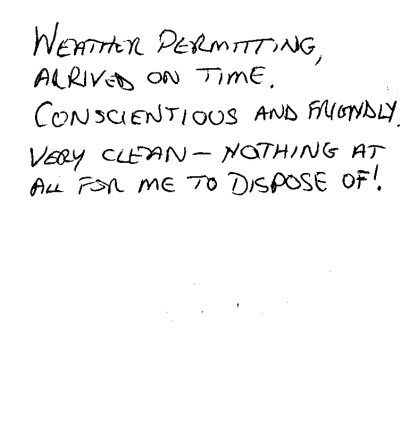 WEATHER PERMITTING,
ARRIVED ON TIME.
CONSCIENTIOUS AND FRIENDLY.
VERY CLEAN – NOTHING AT
ALL FOR ME TO DISPOSE OF!